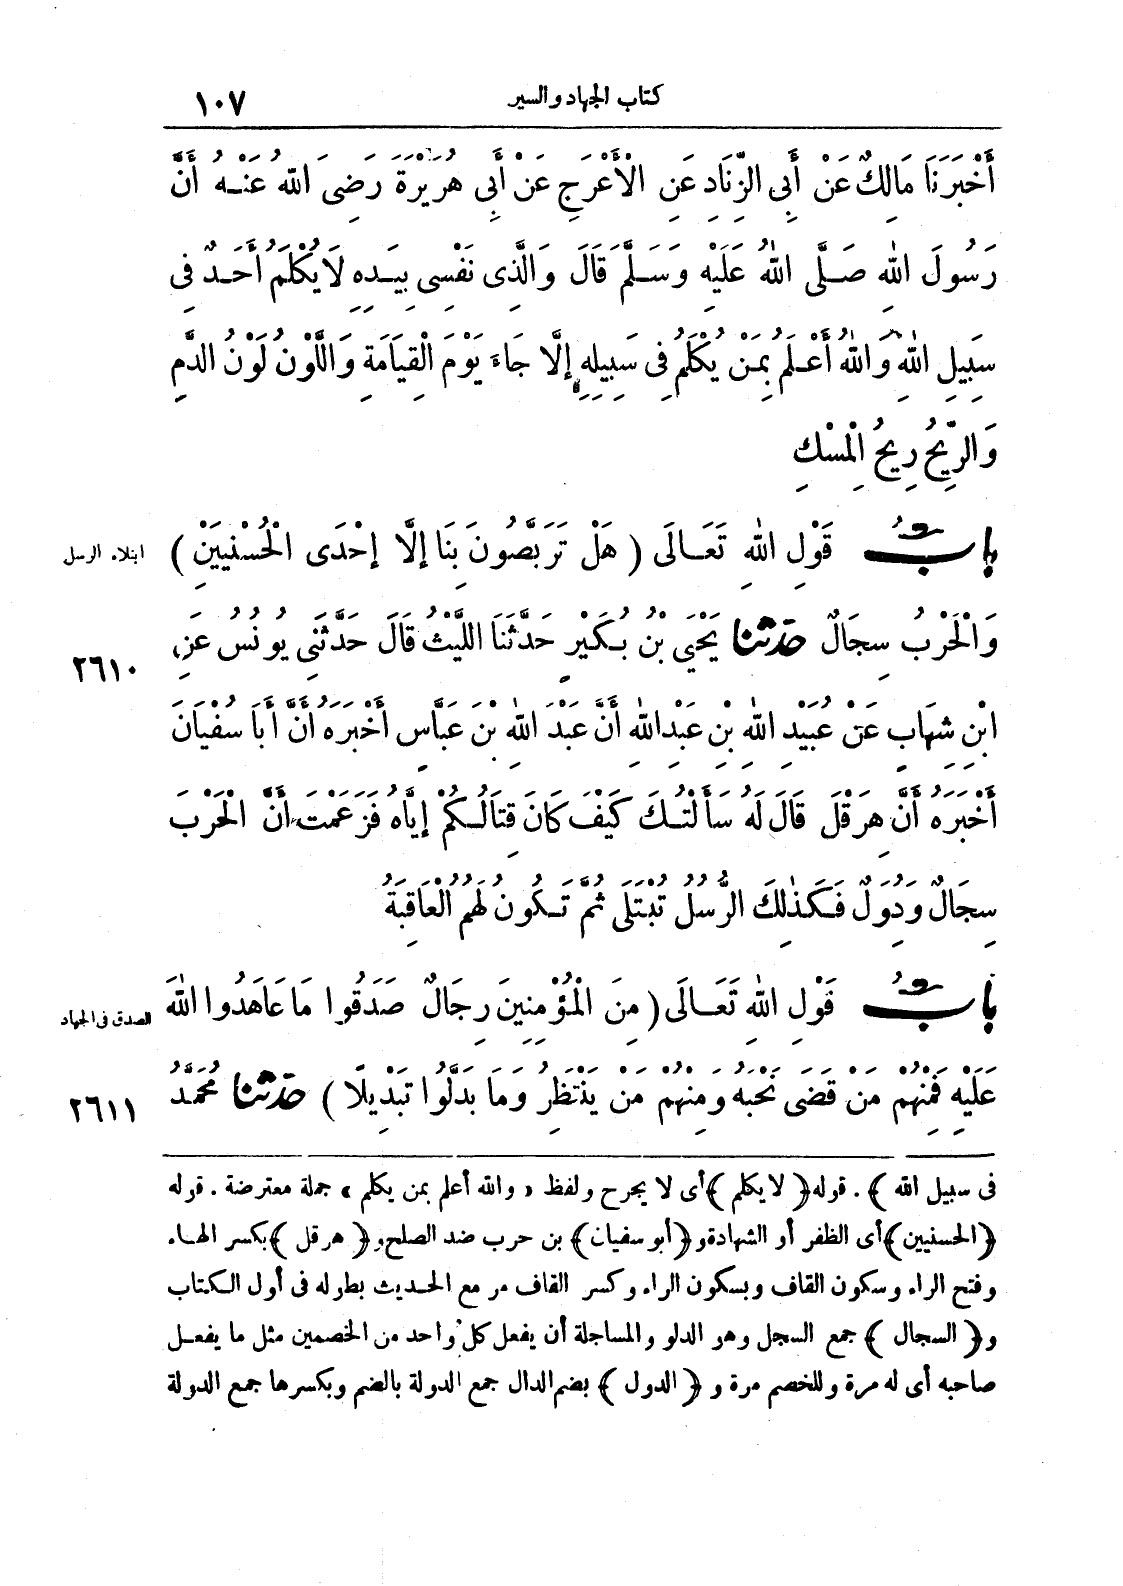 كتاب الجهاد والسير ١٠٧
أَخْبَرَنَا مَالِكٌ عَنْ أَبِى الزِّنَادِ عَنِ الْأَعْرَجِ عَنْ أَبِى هُرَيْرَةَ رَضِىَ اللهُ عَنْهُ أَنَّ
رَسُولَ اللهِ صَلَّى اللهُ عَلَيْهِ وَسَلَّمَ قَالَ وَالَّذِى نَفْسِى بِيَدِهِ لَا يُكْلَمُ أَحَدٌ فِى
سَبِيلِ اللهِ وَاللهُ أَعْلَمُ بِمَنْ يُكْلَمُ فِى سَبِيلِهِ إِلَّا جَاءَ يَوْمَ الْقِيَامَةِ وَاللَّوْنُ لَوْنُ الدَّمِ
وَالرِّيحُ رِيحُ الْمِسْكِ
بَابُ قَوْلِ اللهِ تَعَالَى ( هَلْ تَرَبَّصُونَ بِنَا إِلَّا إِحْدَى الْحُسْنَيَيْنِ )
ابتلاء الرسل
وَالْحَرْبُ سِجَالٌ حدثنا يَحْيَى بْنُ بُكَيْرٍ حَدَّثَنَا اللَّيْثُ قَالَ حَدَّثَنِى يُونُسُ عَنِ
٢٦١٠
ابْنِ شِهَابٍ عَنْ عُبَيْدِ اللهِ بْنِ عَبْدِ اللهِ أَنَّ عَبْدَ اللهِ بْنَ عَبَّاسٍ أَخْبَرَهُ أَنَّ أَبَا سُفْيَانَ
أَخْبَرَهُ أَنَّ هِرَقْلَ قَالَ لَهُ سَأَلْتُكَ كَيْفَ كَانَ قِتَالُكُمْ إِيَّاهُ فَزَعَمْتَ أَنَّ الْحَرْبَ
سِجَالٌ وَدُوَلٌ فَكَذٰلِكَ الرُّسُلُ تُبْتَلَى ثُمَّ تَكُونُ لَهُمُ الْعَاقِبَةُ
بَابُ قَوْلِ اللهِ تَعَالَى ( مِنَ الْمُؤْمِنِينَ رِجَالٌ صَدَقُوا مَا عَاهَدُوا اللهَ
الصدق فى الجهاد
عَلَيْهِ فَمِنْهُمْ مَنْ قَضَى نَحْبَهُ وَمِنْهُمْ مَنْ يَنْتَظِرُ وَمَا بَدَّلُوا تَبْدِيلًا ) حدثنا مُحَمَّدُ
٢٦١١
فى سبيل الله ﴾ . قوله ﴿ لا يكلم ﴾ أى لا يجرح ولفظ « والله أعلم بمن يكلم » جملة معترضة . قوله
﴿ الحسنيين ﴾ أى الظفر أو الشهادة و ﴿ أبو سفيان ﴾ بن حرب ضد الصلح و ﴿ هرقل ﴾ بكسر الهاء
وفتح الراء وسكون القاف وبسكون الراء وكسر القاف مر مع الحديث بطوله فى أول الكتاب
و ﴿ السجال ﴾ جمع السجل وهو الدلو والمساجلة أن يفعل كل واحد من الخصمين مثل ما يفعل
صاحبه أى له مرة وللخصم مرة و ﴿ الدول ﴾ بضم الدال جمع الدولة بالضم وبكسرها جمع الدولة